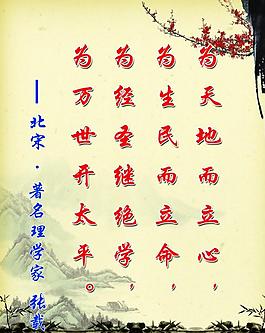 为天地而立心，
为生民而立命，
为经圣继绝学，
为万世开太平。
——北宋·著名理学家 张载